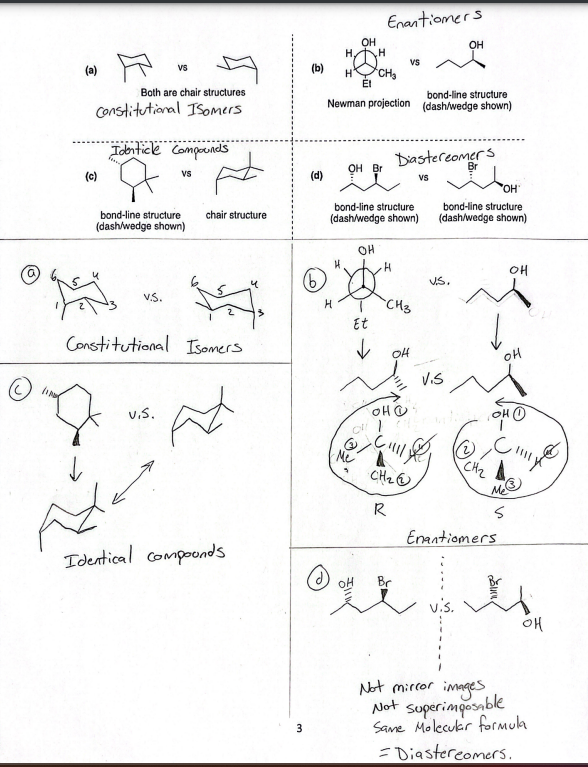 Enantiomers
(a)
vs
Both are chair structures
Constitutional Isomers
(b)
OH
H H
H CH3
Et
vs
OH
Newman projection
bond-line structure
(dash/wedge shown)
Identicle Compounds
(c)
vs
bond-line structure
(dash/wedge shown)
chair structure
Diastereomers
(d)
OH Br
vs
Br
OH
bond-line structure
(dash/wedge shown)
bond-line structure
(dash/wedge shown)
a
6 5 4
1 2 3
v.s.
6 5 4
1 2 3
Constitutional Isomers
b
OH
H H
H CH3
Et
v.s.
OH
OH
v.s
OH
OH 1
3 Me C H
CH2 2
R
OH 1
2 CH2 C H
Me 3
S
Enantiomers
c
v.s.
Identical compounds
d
OH Br
v.s.
Br
OH
Not mirror images
Not superimposable
Same Molecular formula
= Diastereomers.
3